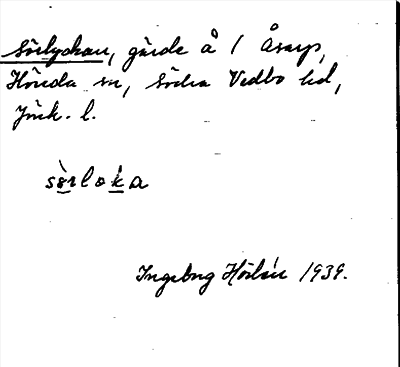 Sörlyckan, gärde å 1 Åsarp,
Hörida sn, Södra Vedbo hd,
Jönk. l.
sèrloka
Ingeborg Hörlén 1939.